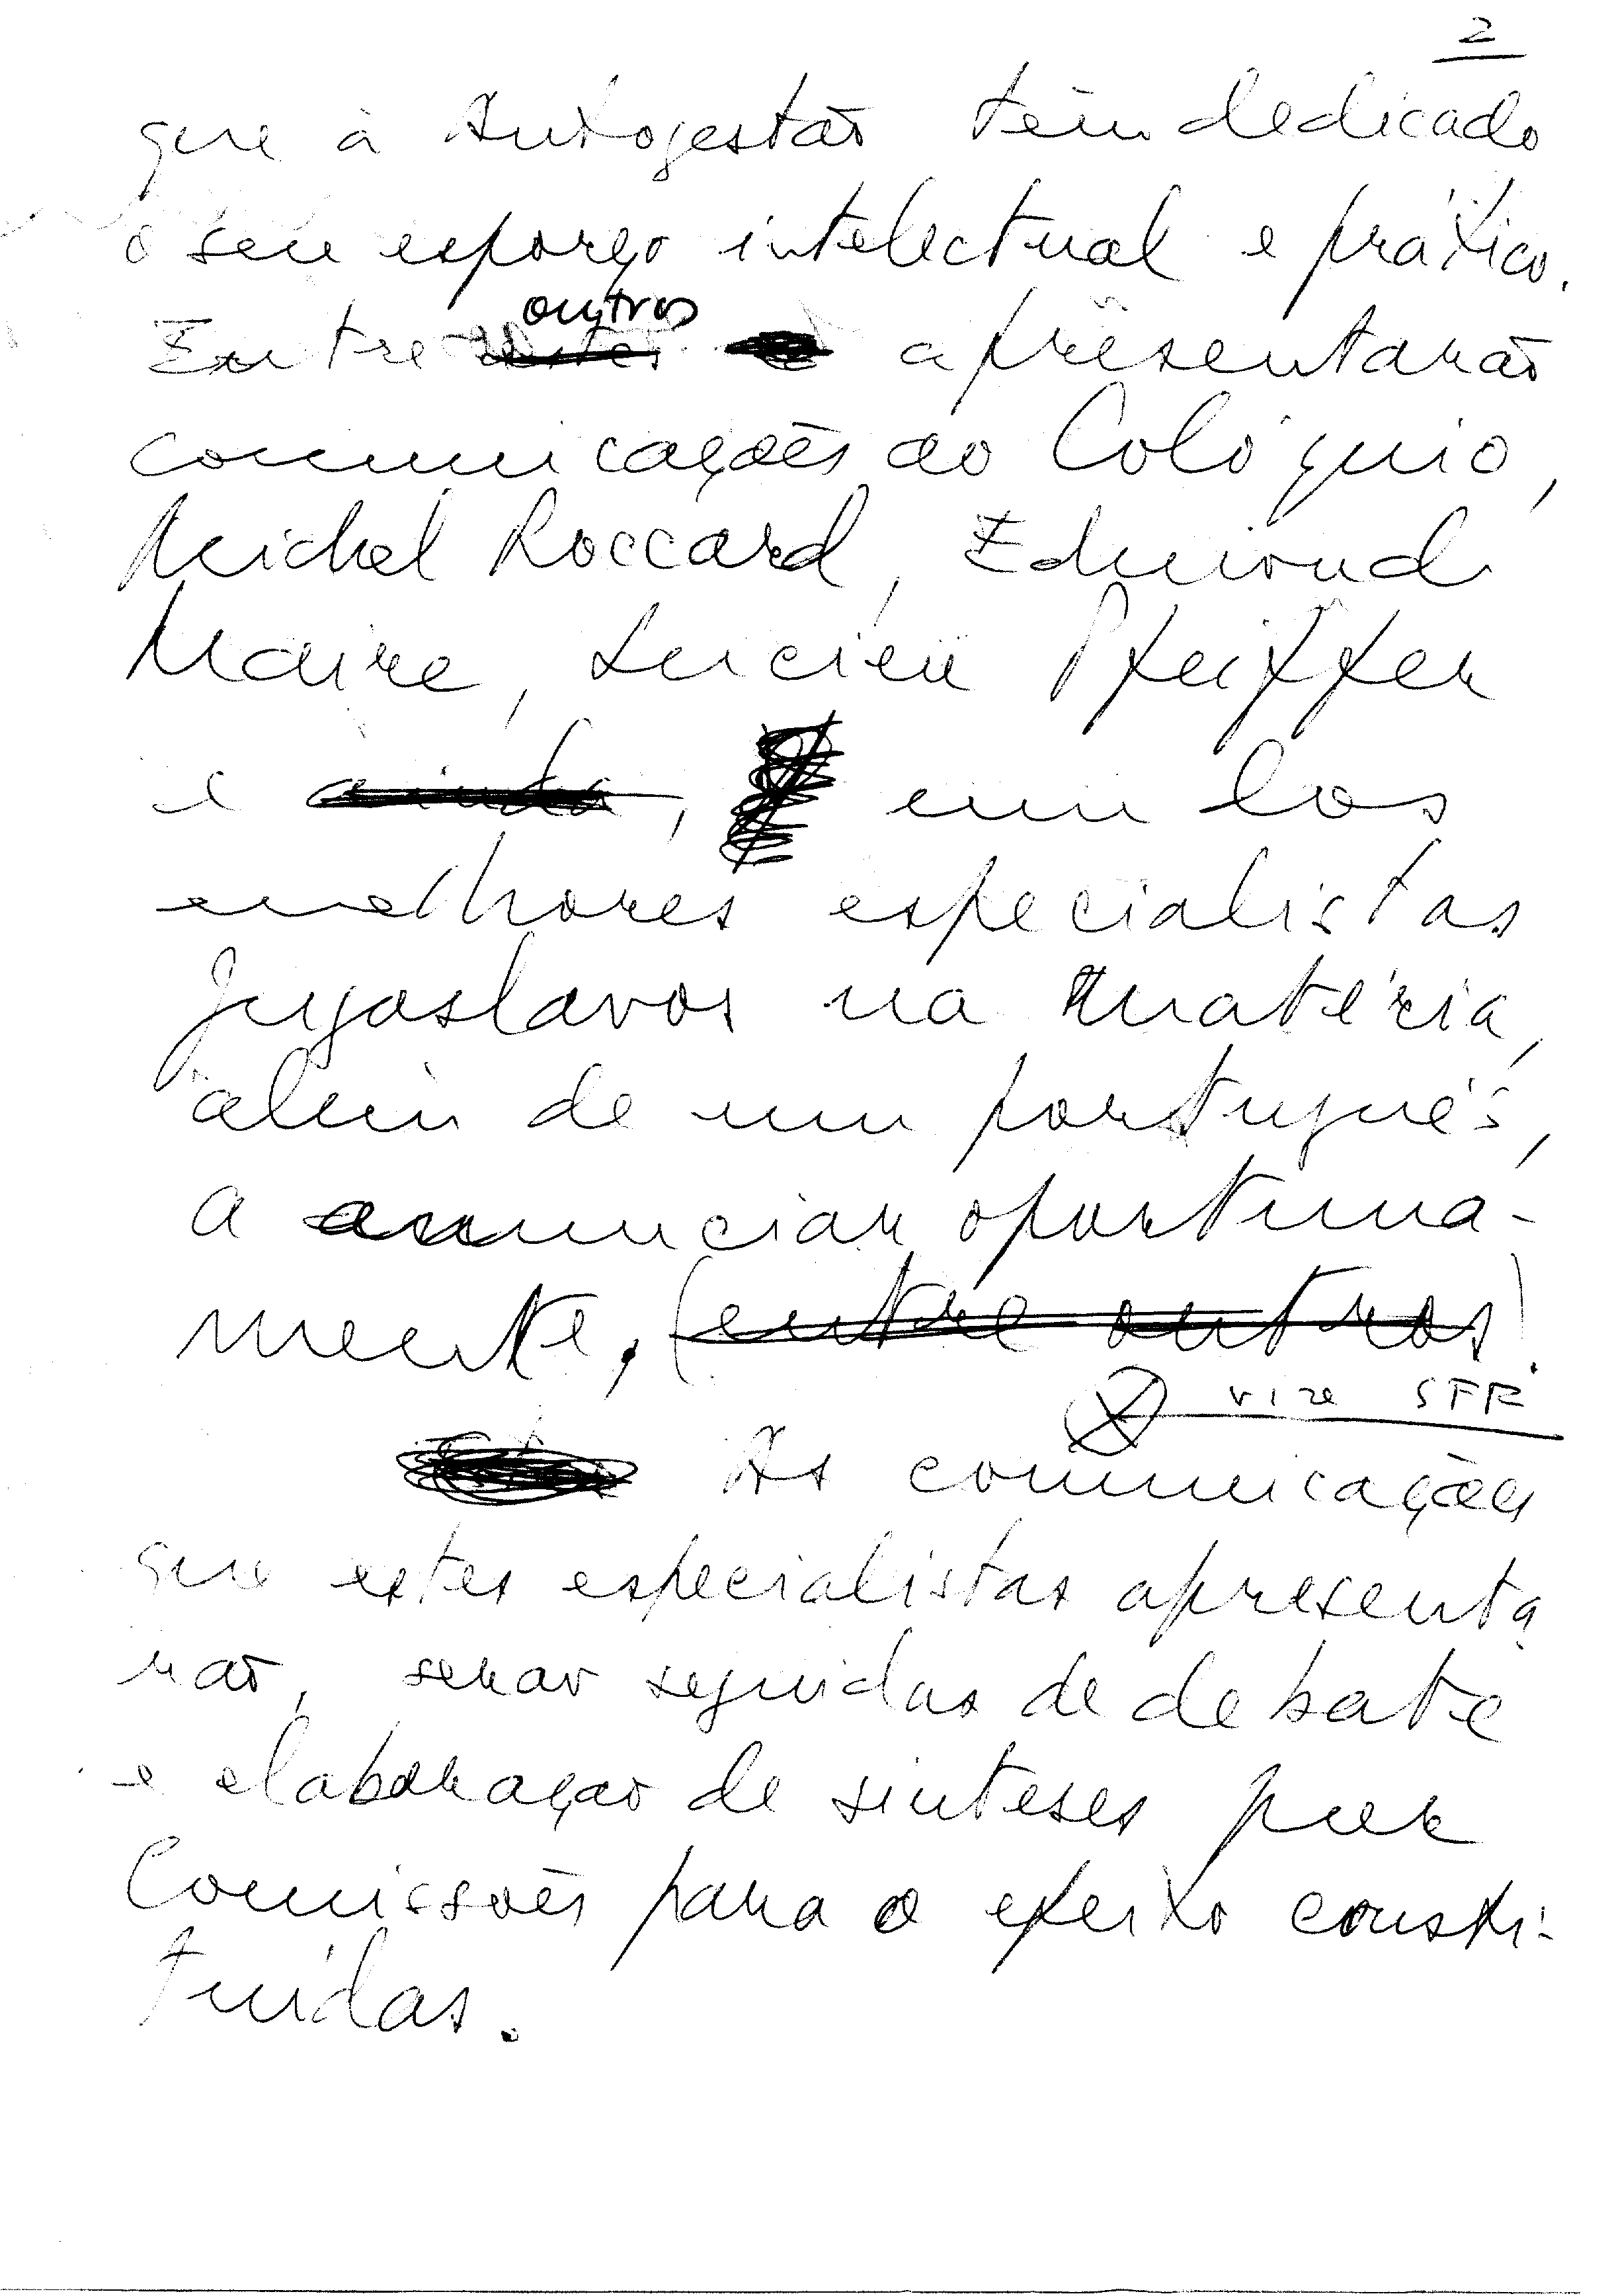 2
que à Autogestão têm dedicado
o seu esforço intelectual e prático.
outros
Entre estes apresentarão
comunicações ao Colóquio,
Michel Roccard, Edmond
Maire, Lucien Pfeiffer
e ainda, um dos
melhores especialistas
jugoslavos na matéria,
além de um português,
a anunciar oportuna-
mente, (entre outros).
vire SFF
As comunicações
que estes especialistas apresenta
rão, serão seguidas de debate
e elaboração de sinteses por
Comissões para o efeito consti-
tuídas.